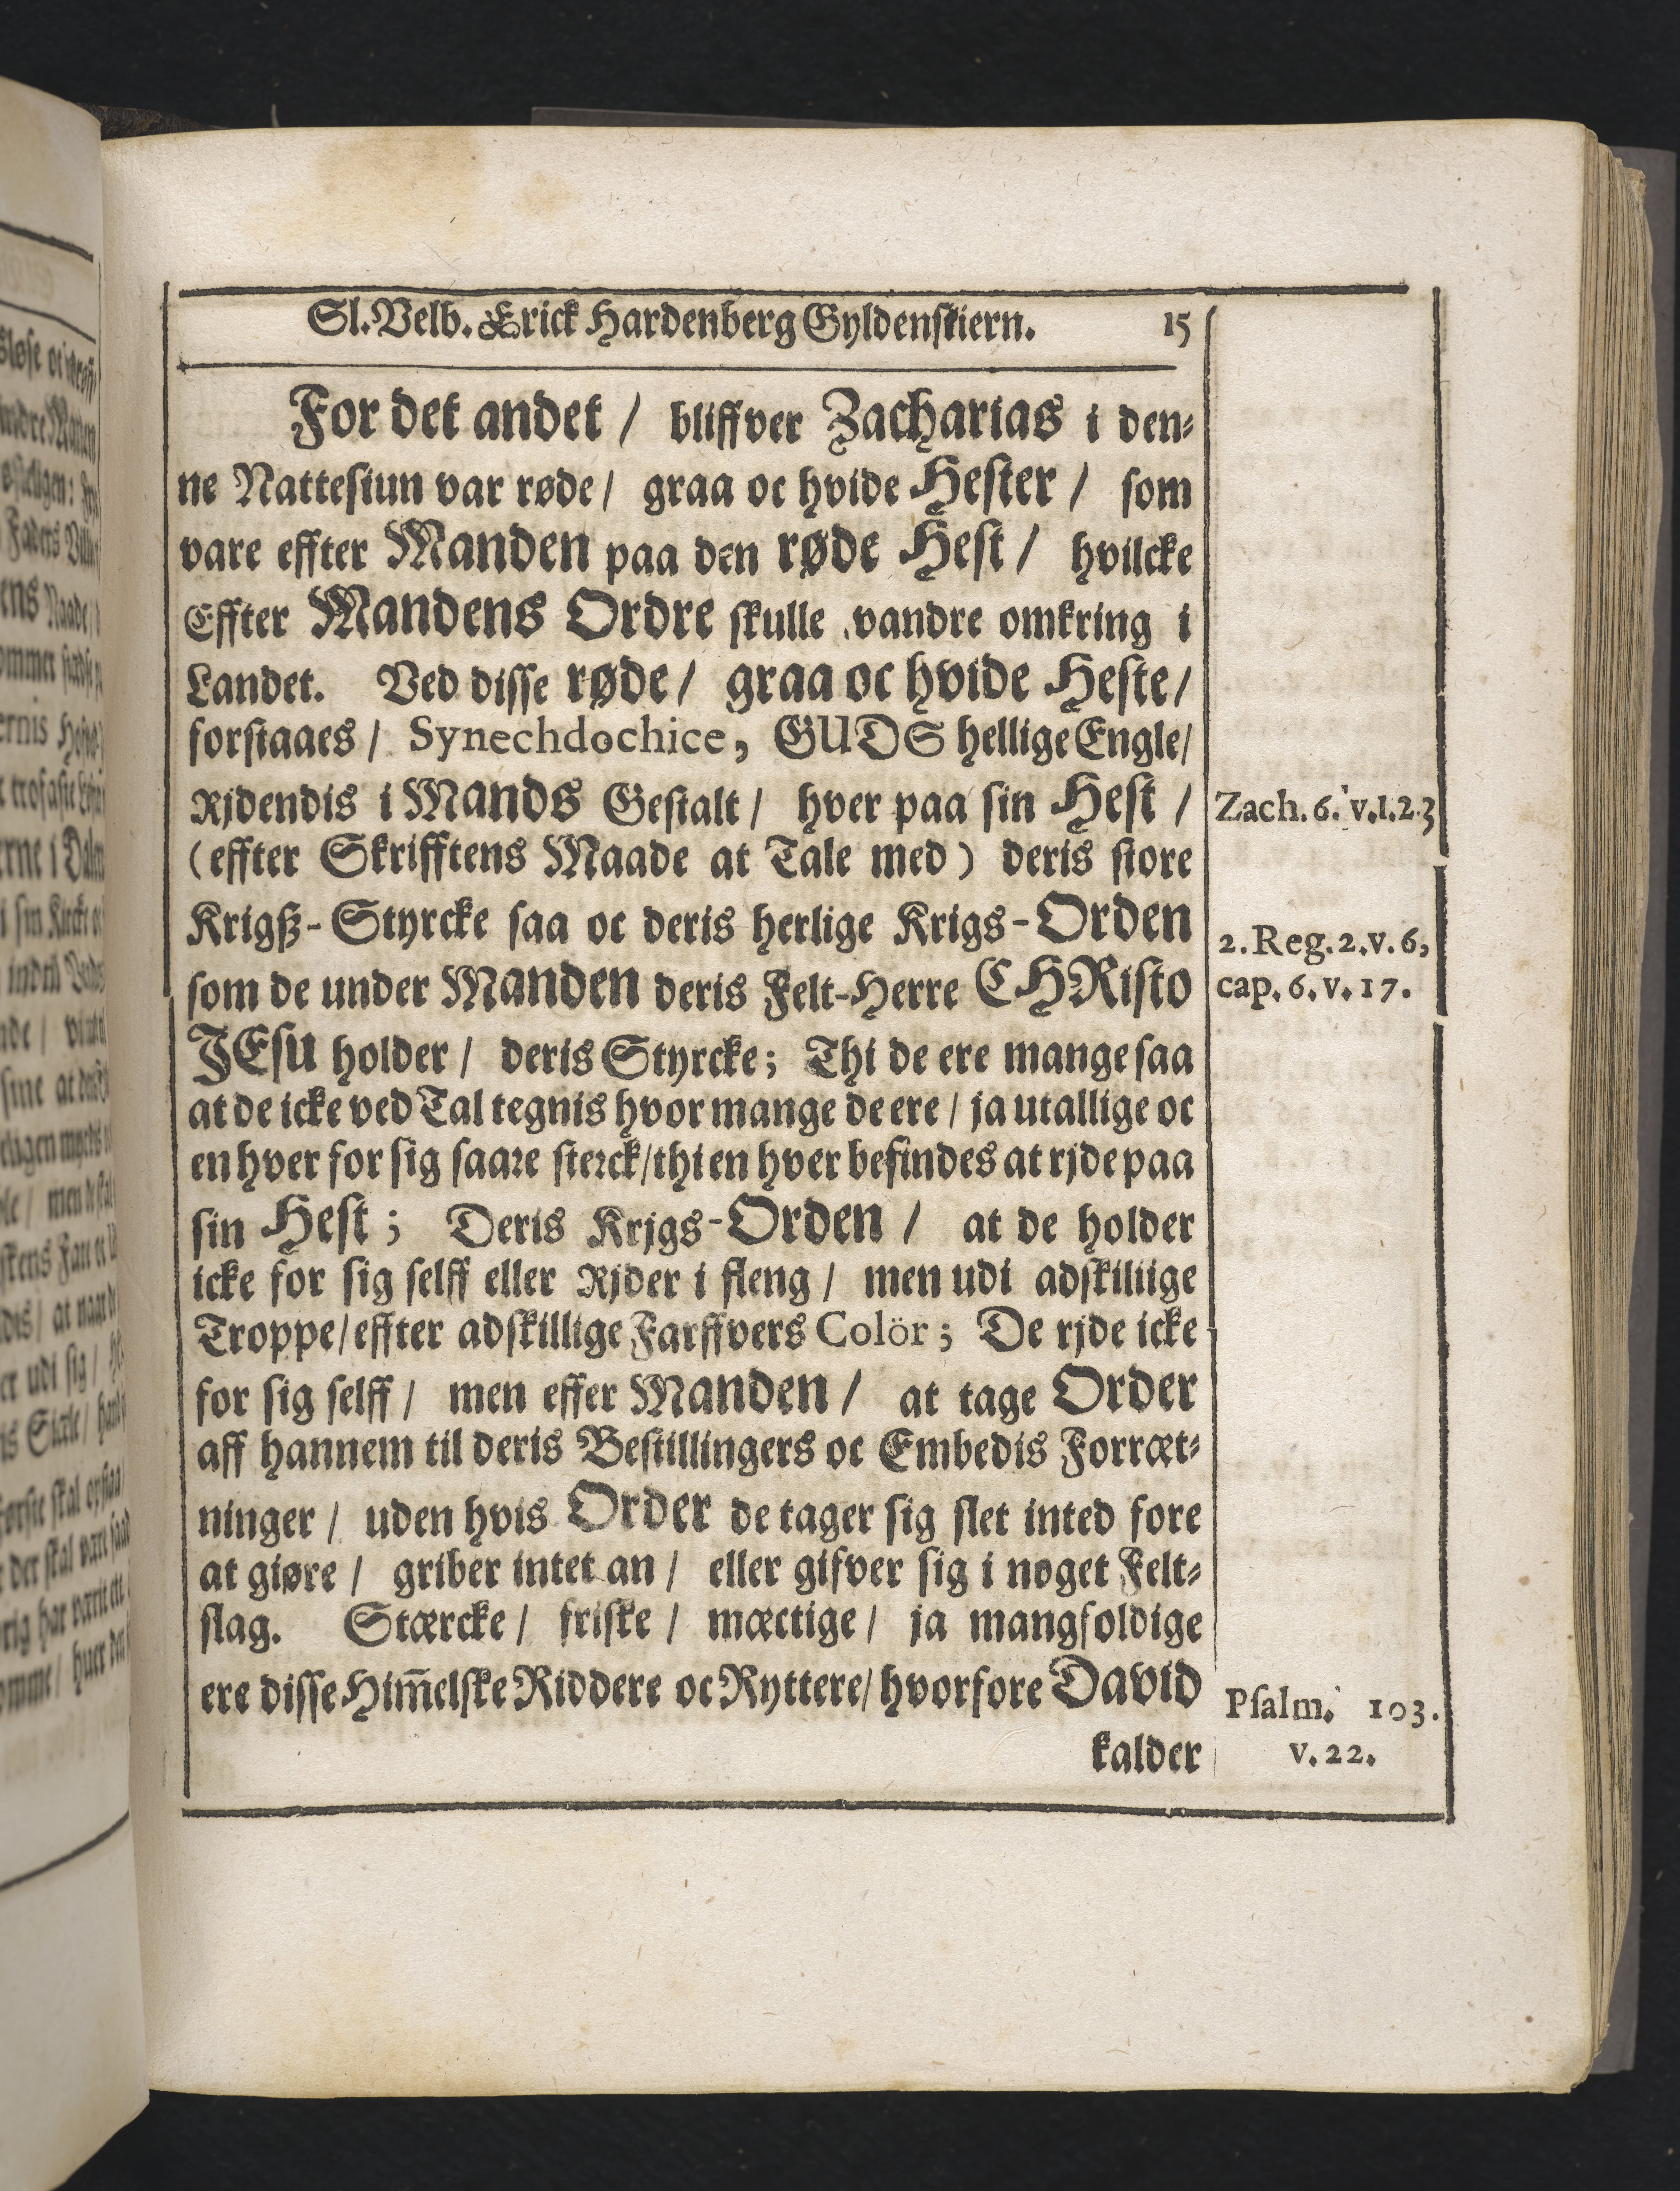 Sl. Velb. Erick Hardenberg Gyldenstiern. 15
For det andet / bliffver Zacharias i den-
ne Nattesiun var røde / graa oc hvide Hester / som
vare effter Manden paa den røde Hest / hvilcke
Effter Mandens Ordre skulle vandre omkring i
Landet. Ved disse røde / graa oc hvide Heste /
forstaaes / Synechdochice, GUDS hellige Engle /
Rjdendis i Mands Gestalt / hver paa sin Hest /
Zach. 6. v. 1. 2. 3
(effter Skrifftens Maade at Tale med) deris store
Krigß-Styrcke saa oc deris herlige Krigs-Orden
2. Reg. 2. v. 6,
som de under Manden deris Felt-Herre CHRisto
cap. 6. v. 17.
JEsu holder / deris Styrcke; Thi de ere mange saa
at de icke ved Tal tegnis hvor mange de ere / ja utallige oc
en hver for sig saare sterck / thi en hver befindes at rjde paa
sin Hest; Deris Krjgs-Orden / at de holder
icke for sig selff eller Rjder i fleng / men udi adskiliige
Troppe / effter adskillige Farffvers Colör; De rjde icke
for sig selff / men effer Manden / at tage Order
aff hannem til deris Bestillingers oc Embedis Forræt-
ninger / uden hvis Order de tager sig slet inted fore
at giøre / griber intet an / eller gifver sig i noget Felt-
slag. Stærcke / friske / mæctige / ja mangfoldige
ere disse Him̃elske Riddere oc Ryttere / hvorfore David
Psalm. 103.
kalder
v. 22.